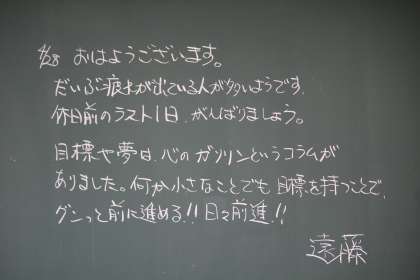 4/28 おはようございます。
だいぶ疲れが出ている人が多いようです.
休日前のラスト1日、がんばりましょう。
目標や夢は、心のガソリンというコラムが
ありました。何か小さなことでも目標を持つことで、
グンっと前に進める!!日々前進!!
遠藤